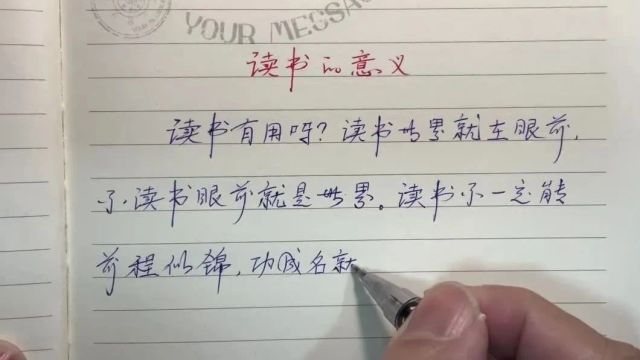 YOUR MESSA
读书的意义
读书有用吗？读书世界就在眼前，
不读书眼前就是世界。读书不一定能
前程似锦，功成名就